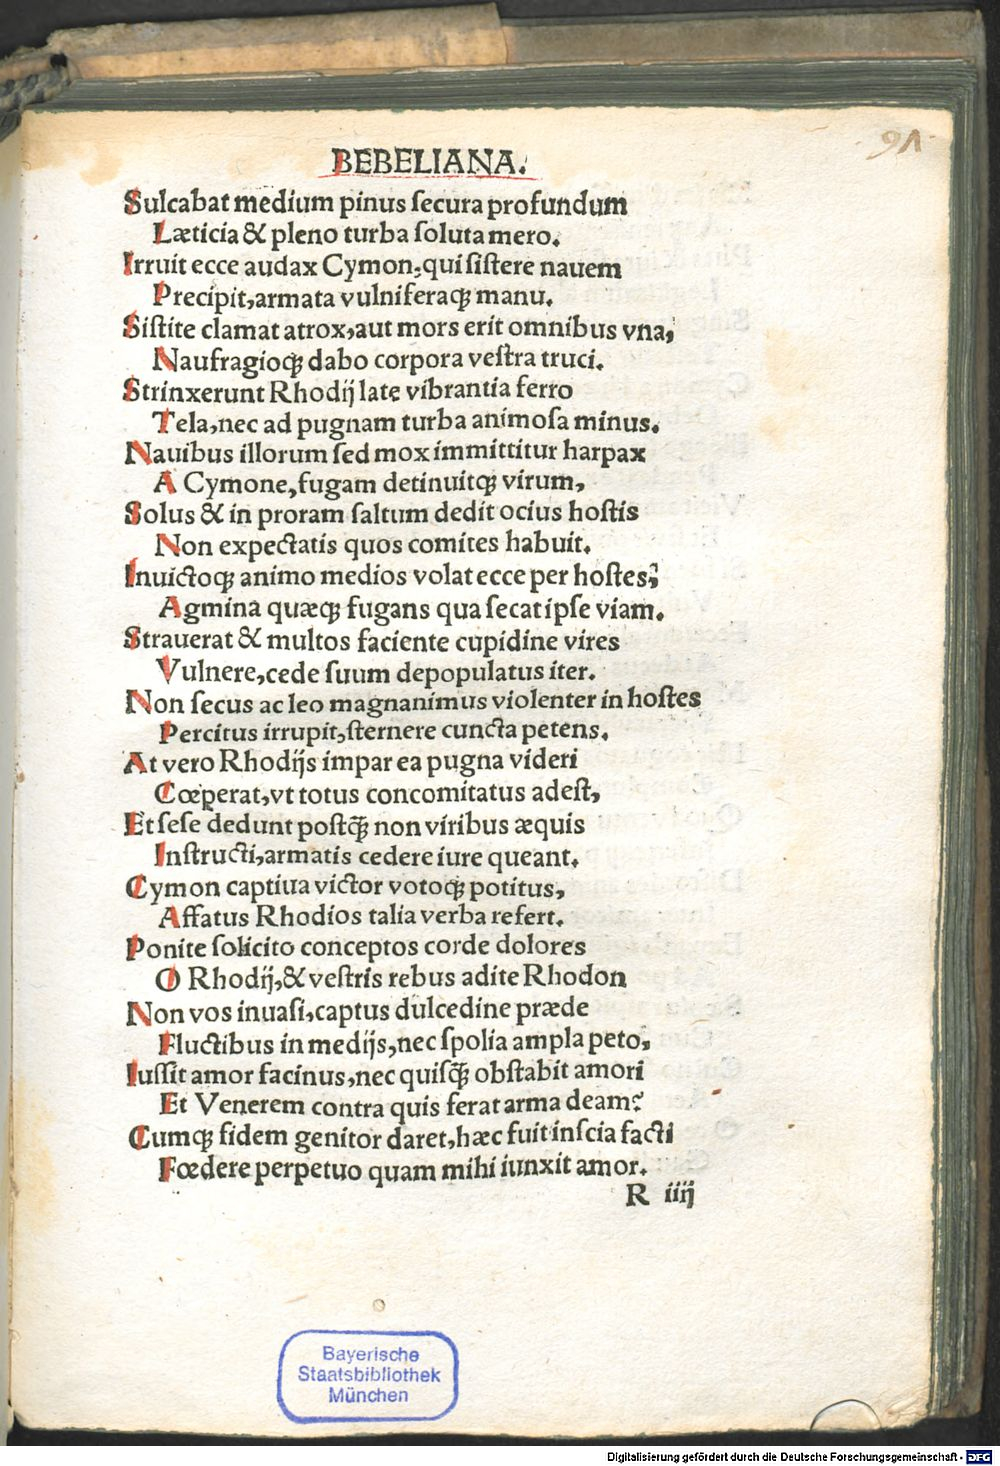 91
BEBELIANA.
Sulcabat medium pinus ſecura profundum
Læticia & pleno turba ſoluta mero.
Irruit ecce audax Cymon, qui ſiſtere nauem
Precipit, armata vulniferaqꝫ manu.
Siſtite clamat atrox, aut mors erit omnibus vna,
Naufragioqꝫ dabo corpora veſtra truci.
Strinxerunt Rhodij late vibrantia ferro
Tela, nec ad pugnam turba animoſa minus.
Nauibus illorum ſed mox immittitur harpax
A Cymone, fugam detinuitqꝫ virum,
Solus & in proram ſaltum dedit ocius hoſtis
Non expectatis quos comites habuit.
Inuictoqꝫ animo medios volat ecce per hoſtes,
Agmina quæqꝫ fugans qua ſecat ipſe viam.
Strauerat & multos faciente cupidine vires
Vulnere, cede ſuum depopulatus iter.
Non ſecus ac leo magnanimus violenter in hoſtes
Percitus irrupit, ſternere cuncta petens.
At vero Rhodijs impar ea pugna videri
Cœperat, vt totus concomitatus adeſt,
Et ſeſe dedunt poſtqꝫ̃ non viribus æquis
Inſtructi, armatis cedere iure queant.
Cymon captiua victor votoqꝫ potitus,
Affatus Rhodios talia verba refert.
Ponite ſolicito conceptos corde dolores
O Rhodij, & veſtris rebus adite Rhodon
Non vos inuaſi, captus dulcedine præde
Fluctibus in medijs, nec ſpolia ampla peto,
Iuſſit amor facinus, nec quiſqꝫ̃ obſtabit amori
Et Venerem contra quis ferat arma deam?
Cumqꝫ fidem genitor daret, hæc fuit inſcia facti
Fœdere perpetuo quam mihi iunxit amor.
R iiij
Bayerische
Staatsbibliothek
München
Digitalisierung gefördert durch die Deutsche Forschungsgemeinschaft - DFG